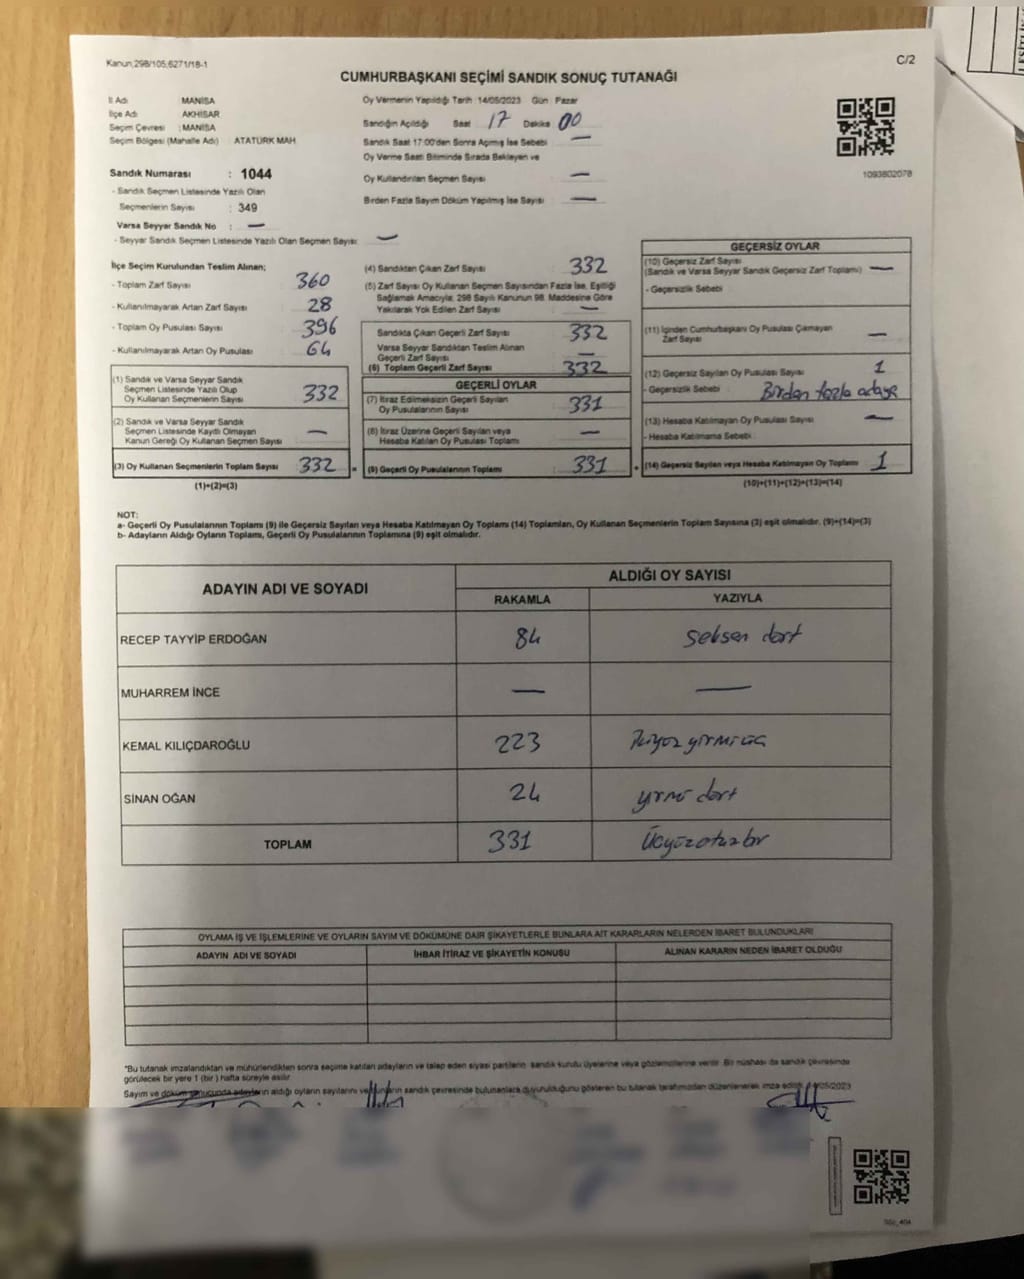 Kanun;298/105;6271/18-1
C/2
CUMHURBAŞKANI SEÇİMİ SANDIK SONUÇ TUTANAĞI
İl Adı MANİSA
İlçe Adı AKHİSAR
Seçim Çevresi : MANİSA
Seçim Bölgesi (Mahalle Adı) : ATATÜRK MAH
Sandık Numarası : 1044
- Sandık Seçmen Listesinde Yazılı Olan
Seçmenlerin Sayısı : 349
Varsa Seyyar Sandık No : —
- Seyyar Sandık Seçmen Listesinde Yazılı Olan Seçmen Sayısı: —
Oy Vermenin Yapıldığı Tarih 14/05/2023 Gün Pazar
Sandığın Açıldığı Saat 17 Dakika 00
Sandık Saat 17:00'den Sonra Açımış İse Sebebi —
Oy Verme Saati Bitiminde Sırada Bekleyen ve
Oy Kullandırılan Seçmen Sayısı —
Birden Fazla Sayım Döküm Yapılmış İse Sayısı —
1093802078
İlçe Seçim Kurulundan Teslim Alınan;
- Toplam Zarf Sayısı 360
- Kullanılmayarak Artan Zarf Sayısı 28
- Toplam Oy Pusulası Sayısı 396
- Kullanılmayarak Artan Oy Pusulası 64
(1) Sandık ve Varsa Seyyar Sandık
Seçmen Listesinde Yazılı Olup
Oy Kullanan Seçmenlerin Sayısı 332
(2) Sandık ve Varsa Seyyar Sandık
Seçmen Listesinde Kayıtlı Olmayan
Kanun Gereği Oy Kullanan Seçmen Sayısı —
(3) Oy Kullanan Seçmenlerin Toplam Sayısı 332
(1)+(2)=(3)
(4) Sandıktan Çıkan Zarf Sayısı 332
(5) Zarf Sayısı Oy Kullanan Seçmen Sayısından Fazla İse, Eşitliği
Sağlamak Amacıyla; 298 Sayılı Kanunun 98. Maddesine Göre
Yakılarak Yok Edilen Zarf Sayısı —
Sandıkta Çıkan Geçerli Zarf Sayısı 332
Varsa Seyyar Sandıktan Teslim Alınan
Geçerli Zarf Sayısı —
(6) Toplam Geçerli Zarf Sayısı 332
GEÇERLİ OYLAR
(7) İtiraz Edilmeksizin Geçerli Sayılan
Oy Pusulalarının Sayısı 331
(8) İtiraz Üzerine Geçerli Sayılan veya
Hesaba Katılan Oy Pusulası Toplamı —
= (9) Geçerli Oy Pusulalarının Toplamı 331
GEÇERSİZ OYLAR
(10) Geçersiz Zarf Sayısı
(Sandık ve Varsa Seyyar Sandık Geçersiz Zarf Toplamı) —
- Geçersizlik Sebebi
(11) İçinden Cumhurbaşkanı Oy Pusulası Çıkmayan
Zarf Sayısı —
(12) Geçersiz Sayılan Oy Pusulası Sayısı 1
- Geçersizlik Sebebi Birden fazla adaya
(13) Hesaba Katılmayan Oy Pusulası Sayısı —
- Hesaba Katılmama Sebebi
+ (14) Geçersiz Sayılan veya Hesaba Katılmayan Oy Toplamı 1
(10)+(11)+(12)+(13)=(14)
NOT:
a- Geçerli Oy Pusulalarının Toplamı (9) ile Geçersiz Sayılan veya Hesaba Katılmayan Oy Toplamı (14) Toplamları, Oy Kullanan Seçmenlerin Toplam Sayısına (3) eşit olmalıdır. (9)+(14)=(3)
b- Adayların Aldığı Oyların Toplamı, Geçerli Oy Pusulalarının Toplamına (9) eşit olmalıdır.
ADAYIN ADI VE SOYADI
ALDIĞI OY SAYISI
RAKAMLA YAZIYLA
RECEP TAYYİP ERDOĞAN 84 seksen dört
MUHARREM İNCE — —
KEMAL KILIÇDAROĞLU 223 İkiyüz yirmi üç
SİNAN OĞAN 24 yirmi dört
TOPLAM 331 Üçyüzotuzbir
OYLAMA İŞ VE İŞLEMLERİNE VE OYLARIN SAYIM VE DÖKÜMÜNE DAİR ŞİKAYETLERLE BUNLARA AİT KARARLARIN NELERDEN İBARET BULUNDUKLARI
ADAYIN ADI VE SOYADI İHBAR İTİRAZ VE ŞİKAYETİN KONUSU ALINAN KARARIN NEDEN İBARET OLDUĞU
"Bu tutanak imzalandıktan ve mühürlendikten sonra seçime katılan adayların ve talep eden siyasi partilerin sandık kurulu üyelerine veya gözlemcilerine verilir. Bir nüshası da sandık çevresinde
görülecek bir yere 1 (bir) hafta süreyle asılır.
Sayım ve döküm sonucunda adayların aldığı oyların sayılarını ve bunların sandık çevresinde bulunanlara duyurulduğunu gösteren bu tutanak tarafımızdan düzenlenerek imza edildi. /05/2023